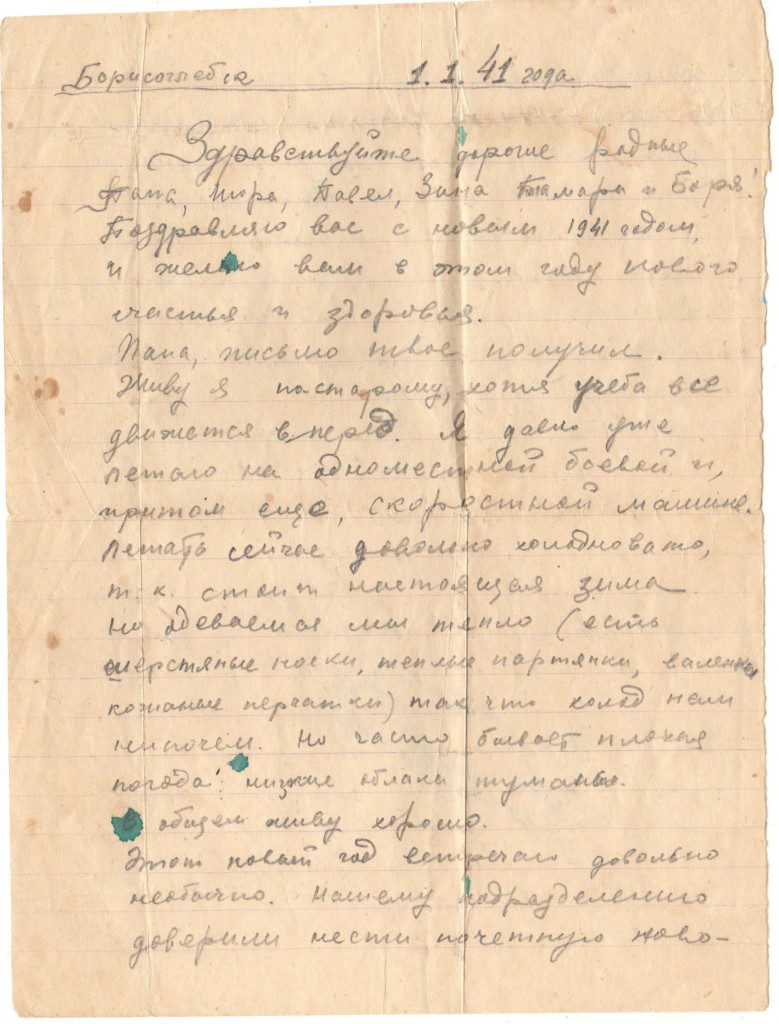 Борисоглебск 1.1.41 года
Здравствуйте дорогие родные
Папа, Шура, Павел, Зина Тамара и Боря!
Поздравляю вас с новым 1941 годом,
и желаю вам в этом году нового
счастья и здоровья.
Папа, письмо твое получил.
Живу я постарому, хотя учеба все
движется вперед. Я давно уже
летаю на одноместной боевой и,
притом еще, скоростной машине.
Летать сейчас довольно холодновато,
т.к. стоит настоящая зима
но одеваемся мы тепло (есть
шерстяные носки, теплые партянки, валенки
кожаные перчатки) так что холод нам
нипочем. Но часто бывает плохая
погода: низкие облака туманы.
В общем живу хорошо.
Этот новый год встречаю довольно
необычно. Нашему подразделению
доверили нести почетную ново-